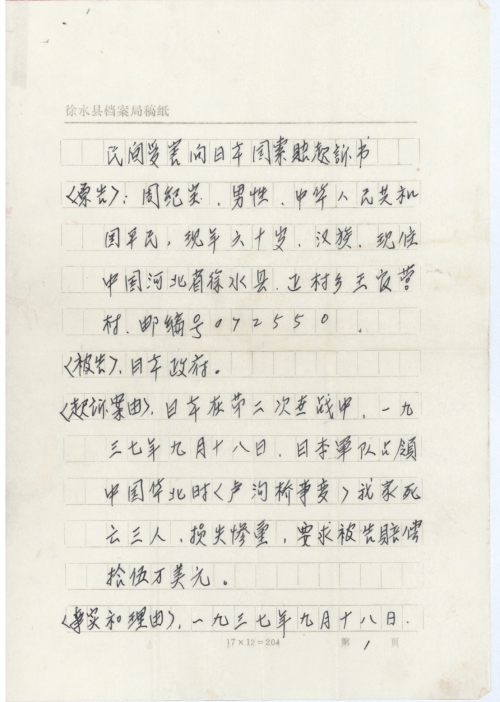 徐水县档案局稿纸
民间受害向日本国索赔起訴书
〈原告〉：周纪荣，男性，中华人民共和
国平民，现年六十岁，汉族，现住
中国河北省徐水县，正村乡王官营
村，邮编号072550
〈被告〉，日本政府。
〈起訴案由〉，日本在第二次世战中，一九
三七年九月十八日，日本軍队占領
中国华北时〈卢沟桥事变〉我家死
亡三人，损失惨重，要求被告賠偿
拾伍万美元。
〈事实和理由〉，一九三七年九月十八日，
17×12=204 第 1 页